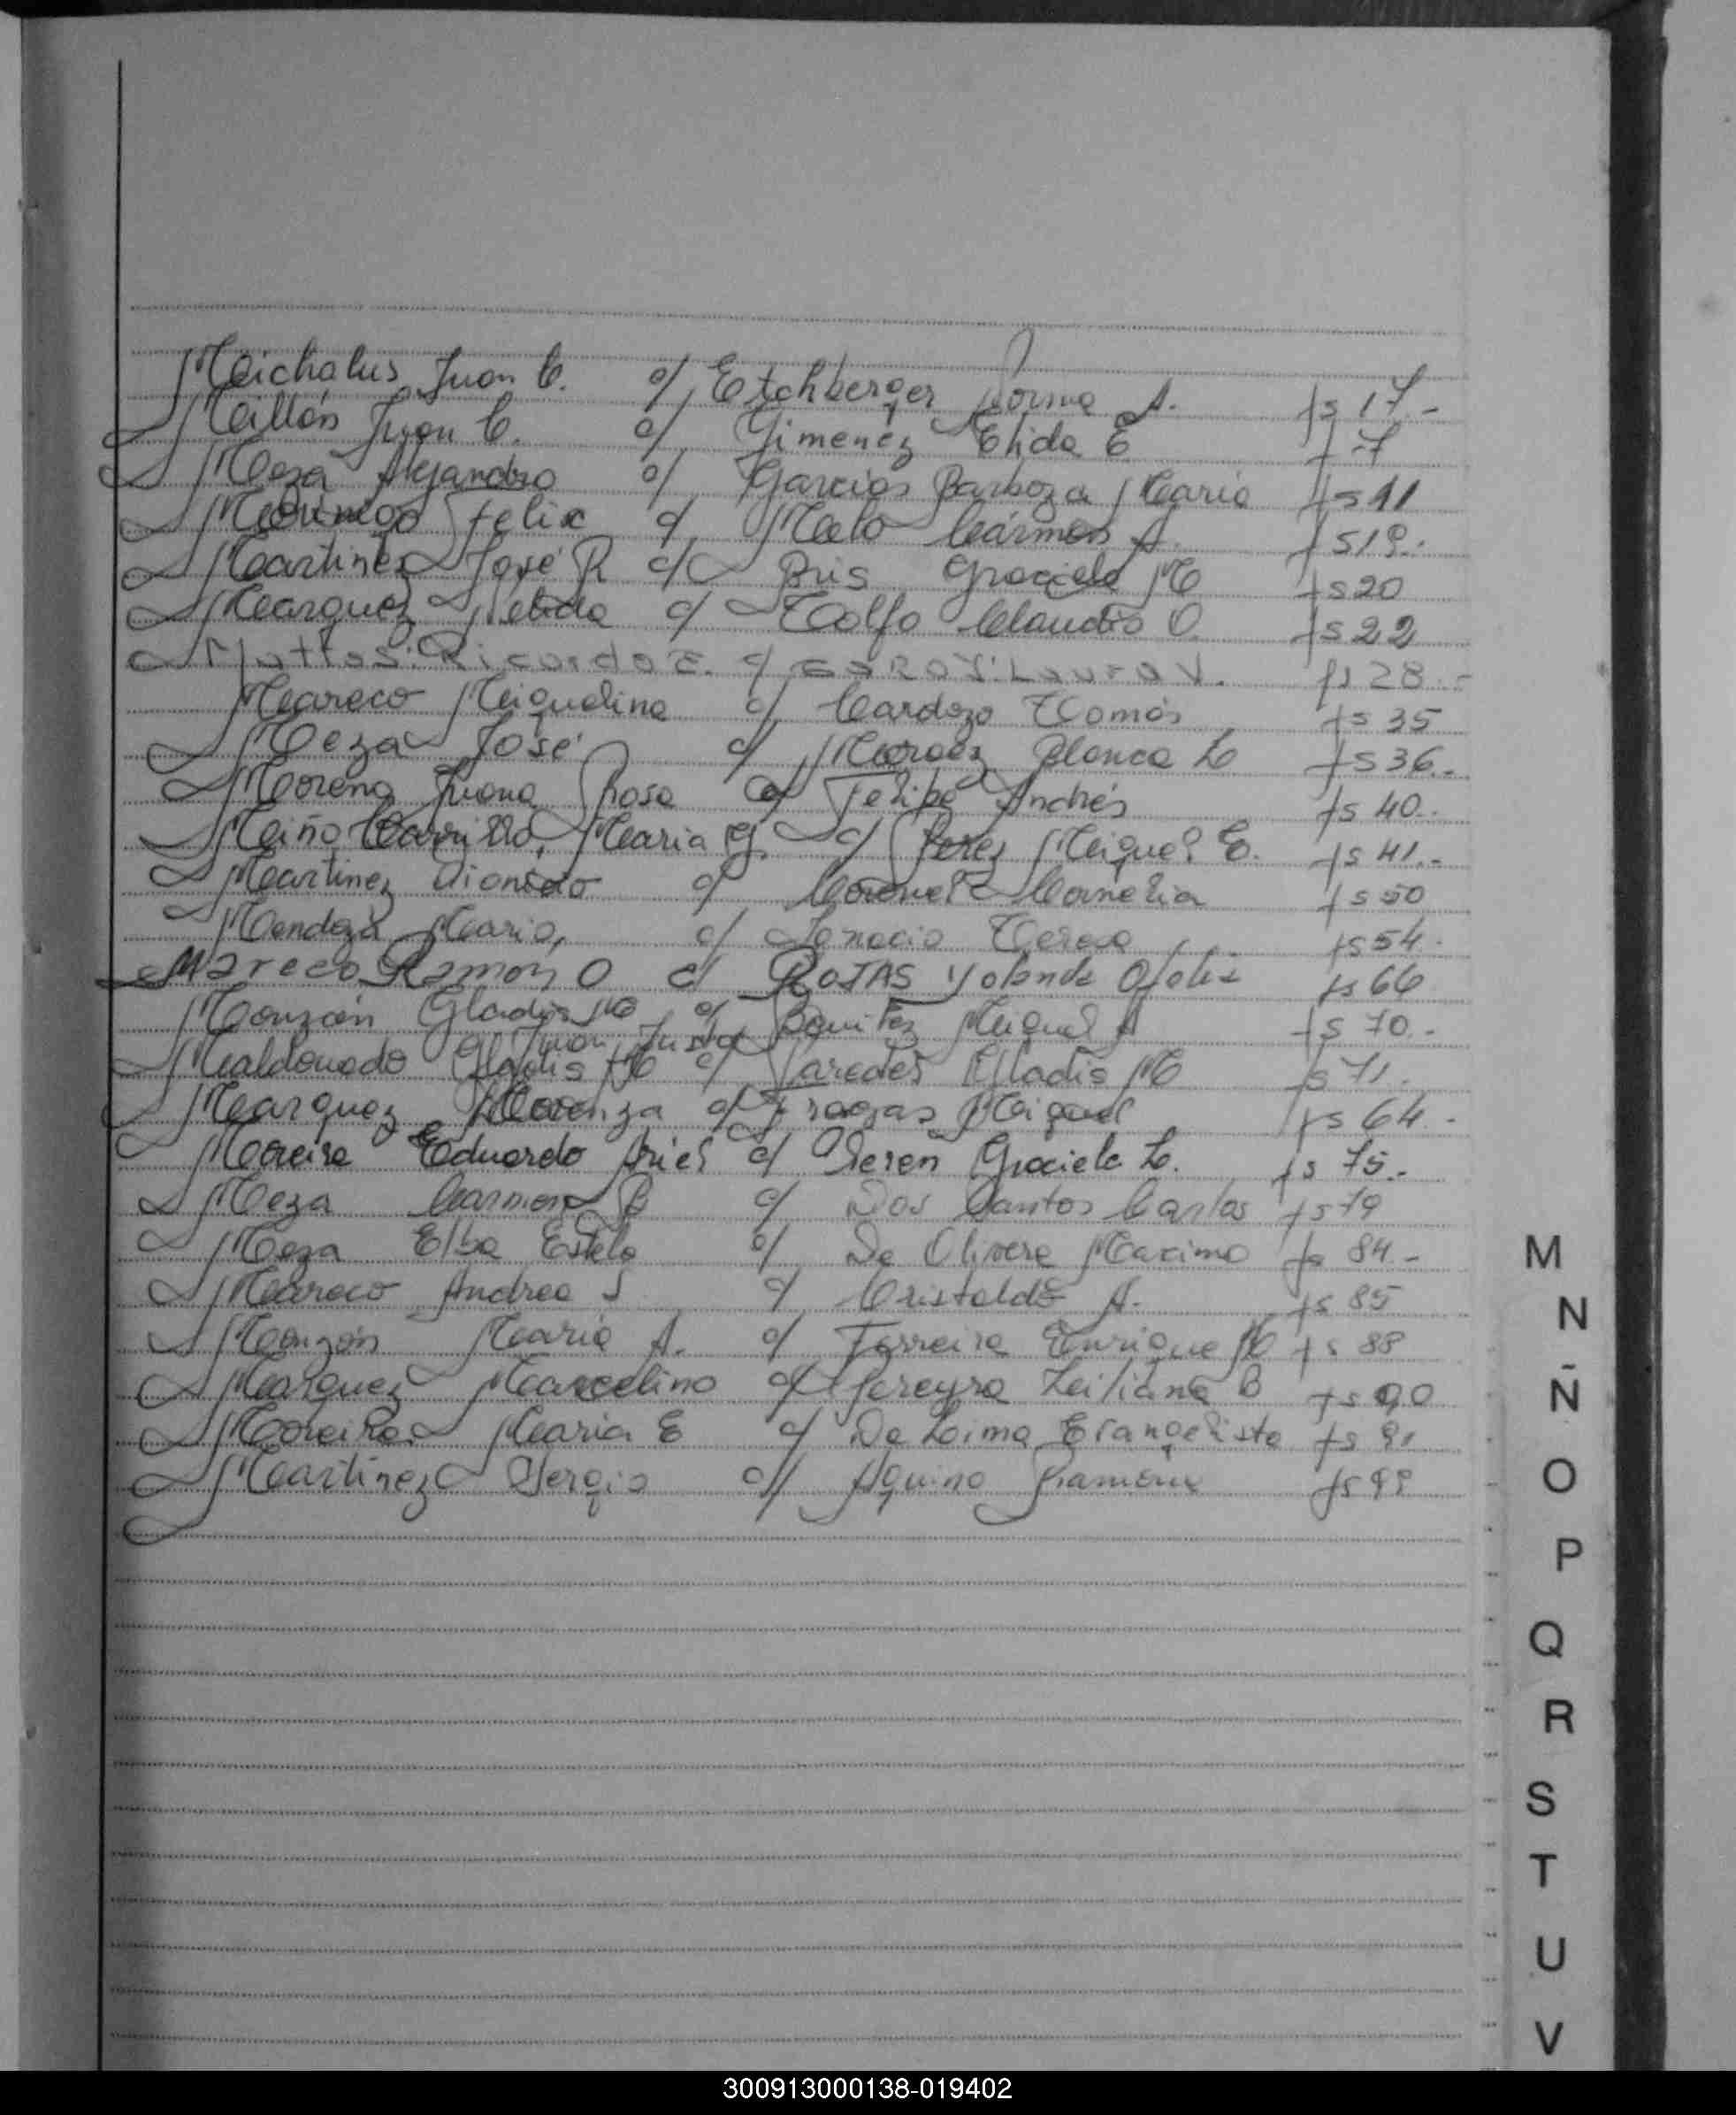 Michalus Juan C. c/ Etchberger Norma A. fs 17.-
Millán Juan C. c/ Gimenez Elida E fs 7
Meza Alejandro c/ Garcias Barboza Maria fs 11
Felix c/ Melo Cármen A. fs 19.-
Martinez José R c/ Bris Graciela M fs 20
Marquez Nélida c/ Tolfo Claudio O. fs 22
Mattos Ricardo E. c/ Garay Laura V. fs 28.-
Mareco Miguelina c/ Cardozo Tomás fs 35
Meza José c/ Blanca L fs 36.-
Moreno Juana Rosa c/ Felipe Andrés fs 40.-
Miño Carrillo, Maria G. c/ Perez Miguel E. fs 41.-
Martinez Dionicio c/ Coronel Cornelia fs 50
Mendoza Mario, c/ Ignacio Teresa fs 54.
Mareco Ramón O c/ ROJAS Yolanda Ofelia fs 66
Monzón Gladis M c/ Benitez Miguel A fs 70.-
Juan Justo
Maldonado Gladis M c/ Paredes Gladis M fs 71.
Marquez c/ Fragas Miguel fs 64.-
Moreira Eduardo Ariel c/ Seren Graciela L. fs 75.-
Meza Carmen B c/ Dos Santos Carlos fs 79
Meza Elba Estela c/ De Olivera Maximo fs 84.-
Mareco Andrea S c/ Cristaldo A. fs 85
Monzón Maria A. c/ Ferreira Enrique M fs 88
Marquez Marcelino c/ Pereyra Liliana B fs 90
Moreira Maria E c/ De Lima Evangelista fs 91
Martinez Sergio c/ Aquino Ramona fs 99
M
N
Ñ
O
P
Q
R
S
T
U
V
300913000138-019402